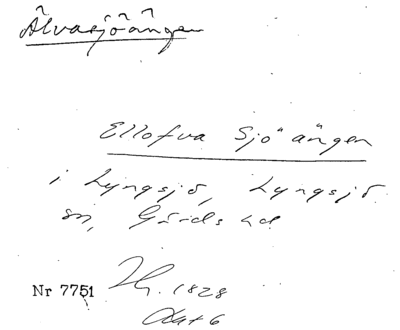 Älvasjöängen
Ellofva Sjö ängen
i Lyngsjö, Lyngsjö
sn, Gärds hd
Nr 7751 Hg. 1828
Akt 6